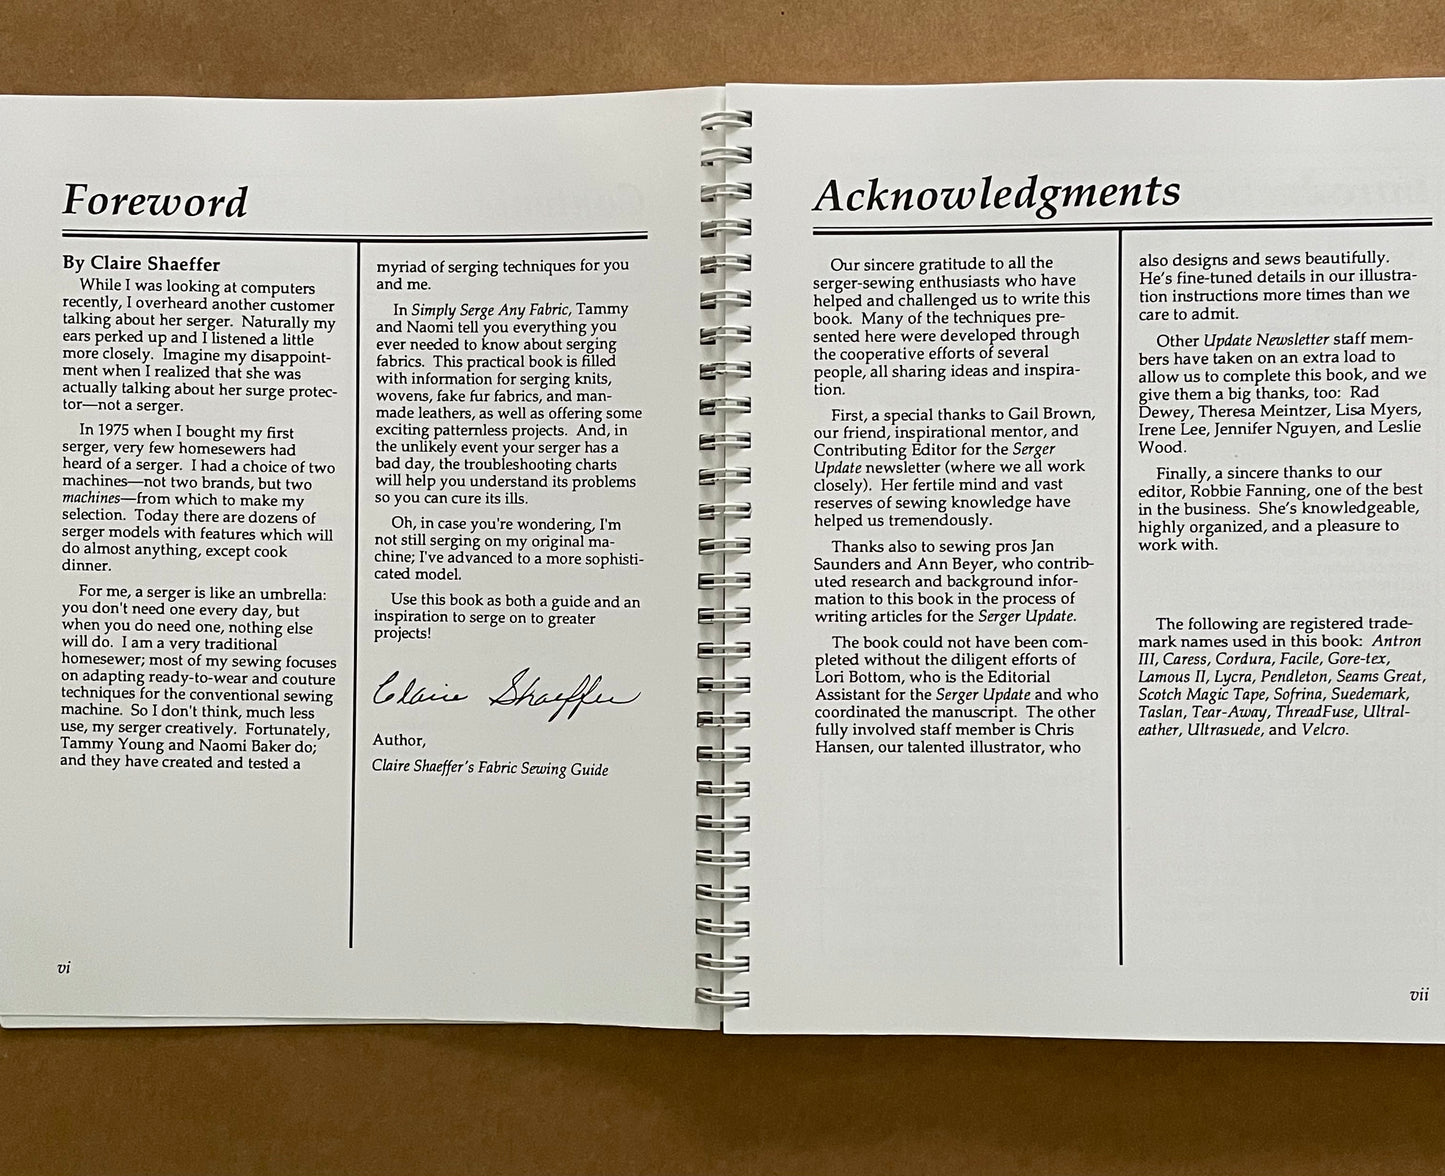 Foreword
By Claire Shaeffer
While I was looking at computers
recently, I overheard another customer
talking about her serger. Naturally my
ears perked up and I listened a little
more closely. Imagine my disappoint-
ment when I realized that she was
actually talking about her surge protec-
tor—not a serger.
In 1975 when I bought my first
serger, very few homesewers had
heard of a serger. I had a choice of two
machines—not two brands, but two
machines—from which to make my
selection. Today there are dozens of
serger models with features which will
do almost anything, except cook
dinner.
For me, a serger is like an umbrella:
you don't need one every day, but
when you do need one, nothing else
will do. I am a very traditional
homesewer; most of my sewing focuses
on adapting ready-to-wear and couture
techniques for the conventional sewing
machine. So I don't think, much less
use, my serger creatively. Fortunately,
Tammy Young and Naomi Baker do;
and they have created and tested a
myriad of serging techniques for you
and me.
In Simply Serge Any Fabric, Tammy
and Naomi tell you everything you
ever needed to know about serging
fabrics. This practical book is filled
with information for serging knits,
wovens, fake fur fabrics, and man-
made leathers, as well as offering some
exciting patternless projects. And, in
the unlikely event your serger has a
bad day, the troubleshooting charts
will help you understand its problems
so you can cure its ills.
Oh, in case you're wondering, I'm
not still serging on my original ma-
chine; I've advanced to a more sophisti-
cated model.
Use this book as both a guide and an
inspiration to serge on to greater
projects!
Claire Shaeffer
Author,
Claire Shaeffer's Fabric Sewing Guide
vi
Acknowledgments
Our sincere gratitude to all the
serger-sewing enthusiasts who have
helped and challenged us to write this
book. Many of the techniques pre-
sented here were developed through
the cooperative efforts of several
people, all sharing ideas and inspira-
tion.
First, a special thanks to Gail Brown,
our friend, inspirational mentor, and
Contributing Editor for the Serger
Update newsletter (where we all work
closely). Her fertile mind and vast
reserves of sewing knowledge have
helped us tremendously.
Thanks also to sewing pros Jan
Saunders and Ann Beyer, who contrib-
uted research and background infor-
mation to this book in the process of
writing articles for the Serger Update.
The book could not have been com-
pleted without the diligent efforts of
Lori Bottom, who is the Editorial
Assistant for the Serger Update and who
coordinated the manuscript. The other
fully involved staff member is Chris
Hansen, our talented illustrator, who
also designs and sews beautifully.
He's fine-tuned details in our illustra-
tion instructions more times than we
care to admit.
Other Update Newsletter staff mem-
bers have taken on an extra load to
allow us to complete this book, and we
give them a big thanks, too: Rad
Dewey, Theresa Meintzer, Lisa Myers,
Irene Lee, Jennifer Nguyen, and Leslie
Wood.
Finally, a sincere thanks to our
editor, Robbie Fanning, one of the best
in the business. She's knowledgeable,
highly organized, and a pleasure to
work with.
The following are registered trade-
mark names used in this book: Antron
III, Caress, Cordura, Facile, Gore-tex,
Lamous II, Lycra, Pendleton, Seams Great,
Scotch Magic Tape, Sofrina, Suedemark,
Taslan, Tear-Away, ThreadFuse, Ultral-
eather, Ultrasuede, and Velcro.
vii